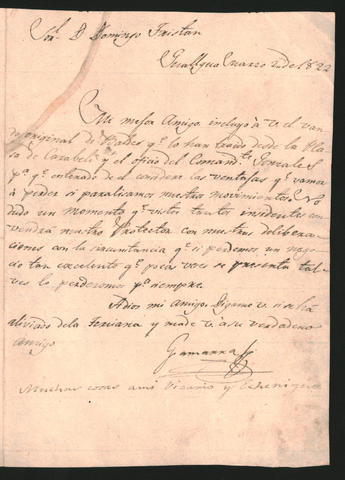 Sor. D. Domingo Tristan
marzo 2 de 1822
Mi mejor Amigo incluyo à V. el van
do original de Valdes qe. lo han traido desde la Pla
sa de Carabeli y el oficio del Comandte. Gonzales
pa. qe. enterado de el considere las ventajas qe. vamos
à perder si paralisamos nuestros movimientos. No
dudo un momento qe. vistos tantos insidentes con
vendrá nuestro Protector con nuestras delibera
ciones con la circunstancia qe. si perdemos un nego
cio tan excelente qe. pocas veces se presenta tal
ves lo perderemos pa. siempre.
Adios mi amigo. Digame V. si se ha
aliviado de la terciana y mande V. à su verdadero
amigo
Gamarra
Muchas cosas a mi Vicario y Echenique